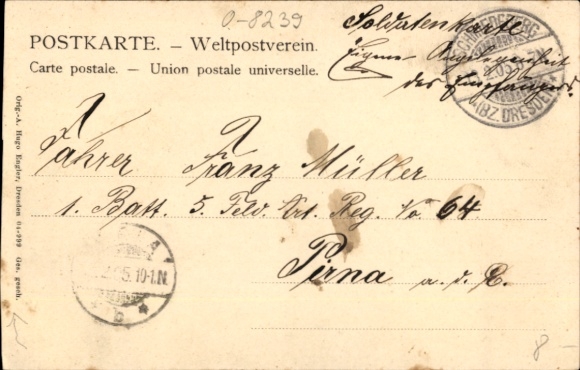 0-8239
Soldatenkarte
Eigene Angelegenheit
des Empfängers.
POSTKARTE. — Weltpostverein.
Carte postale. — Union postale universelle.
SCHMIEDEBERG
(BZ. DRESDEN)
Fahrer Franz Müller
1. Batt. 5. Feld. Art. Reg. No 64
Pirna a. d. E.
5. 10-1.N.
Orig.-A. Hugo Engler, Dresden 04-999 Ges. gesch.
8 -